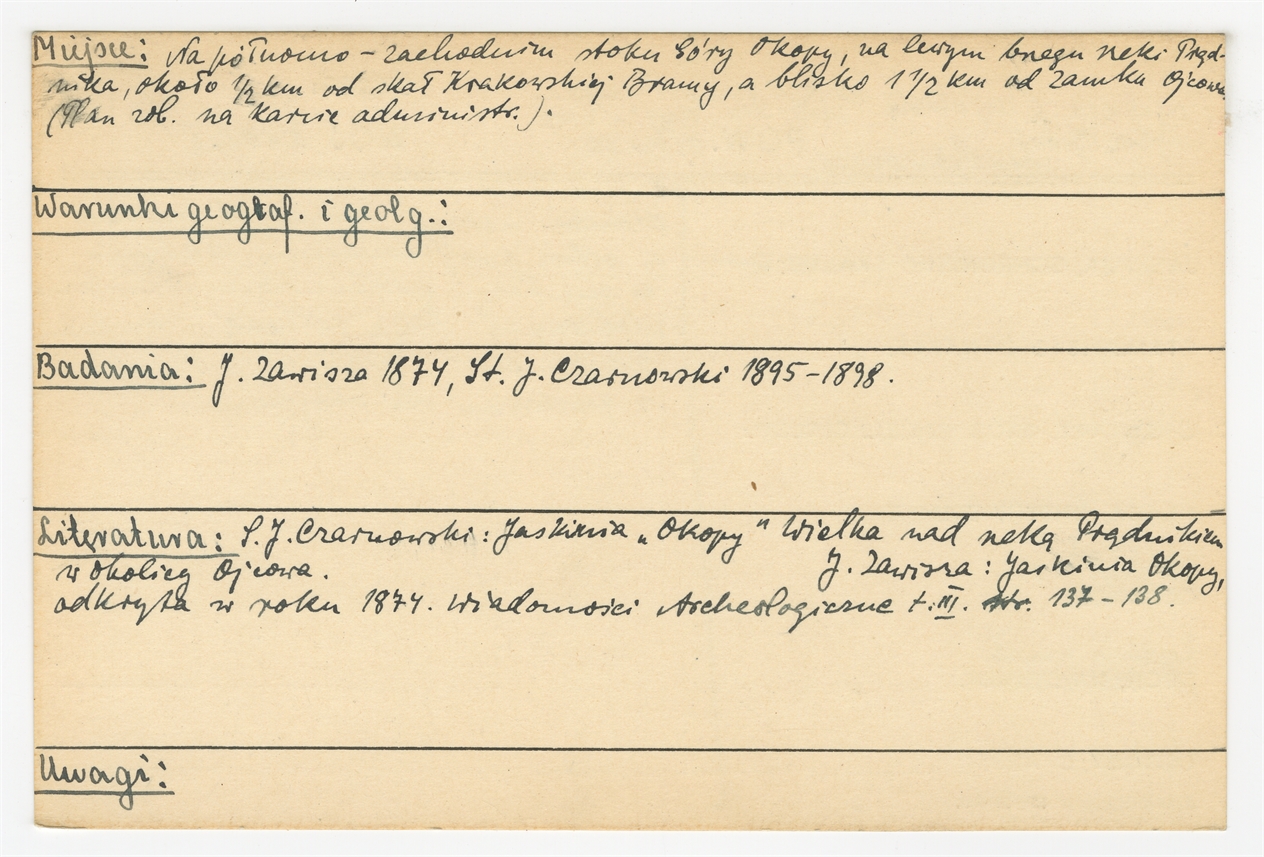 Miejsce: Na północno-zachodnim stoku Góry Okopy, na lewym brzegu rzeki Prąd-
nika, około 1/2 km od skał Krakowskiej Bramy, a blisko 1 1/2 km od zamku Ojcowa.
(Plan rob. na karcie administr.).
Warunki geograf. i geolg.:
Badania: J. Zawisza 1874, St. J. Czarnowski 1895-1898.
Literatura: S.J. Czarnowski: Jaskinia „Okopy" Wielka nad rzeką Prądnikiem
w okolicy Ojcowa. J. Zawisza: Jaskinia Okopy,
odkryta w roku 1874. Wiadomości Archeologiczne t. III. str. 137-138.
Uwagi: